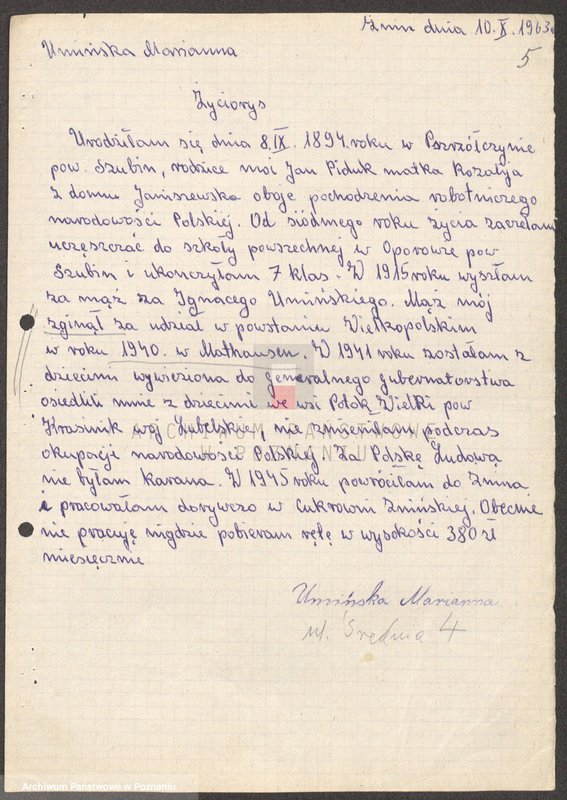 Żnin dnia 10.X.1963r
5
Umińska Marianna
Życiorys
Urodziłam się dnia 8.IX. 1894 roku w
pow. Szubin, rodzice moi Jan Piduk matka Rozalja
z domu Janiszewska oboje pochodzenia robotniczego
narodowości Polskiej. Od siódmego roku życia zaczełam
uczęszczać do szkoły powszechnej w Oporowie pow
Szubin i ukonczyłam 7 klas. W 1915 roku wyszłam
za mąż za Ignacego Umińskiego. Mąż mój
zginął za udział w powstaniu Wielkopolskim
w roku 1940. w Mathausen. W 1941 roku zostałam z
dziećmi wywieziona do generalnego gubernatorstwa
osiedlili mnie z dziećmi we wsi Polok Wielki pow
Krasnik woj Lubelskie, nie zmieniłam podczas
okupacji narodowości Polskiej. Za Polskę Ludową
nie byłam karana. W 1945 roku powróciłam do Żnina
i pracowałam dorywczo w Cukrowni Żnińskiej. Obecnie
nie pracuję nigdzie pobieram rętę w wysokości 380 zł
miesięcznie
Umińska Marianna
ul. Średnia 4
ARCHIWUM PAŃSTWOWE
W POZNANIU
Archiwum Państwowe w Poznaniu